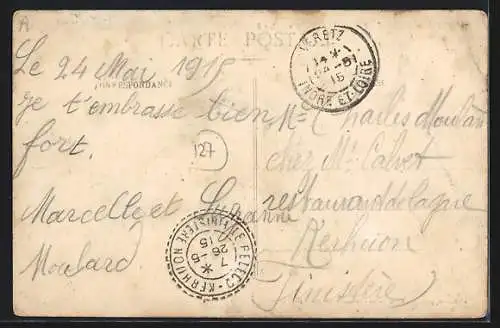 A
CARTE POSTALE
Le 24 Mai 1915
CORRESPONDANCE
je t'embrasse bien
fort.
127
Marcelle et Suzanne
Moulard
VERETZ
14 24-5 15
INDRE-ET-LOIRE
Mr Charles Moulard
chez Mr Calvet
restaurant de la gare
Kerhuon
Finistère
7 26-5 15
KERHUON FINISTERE